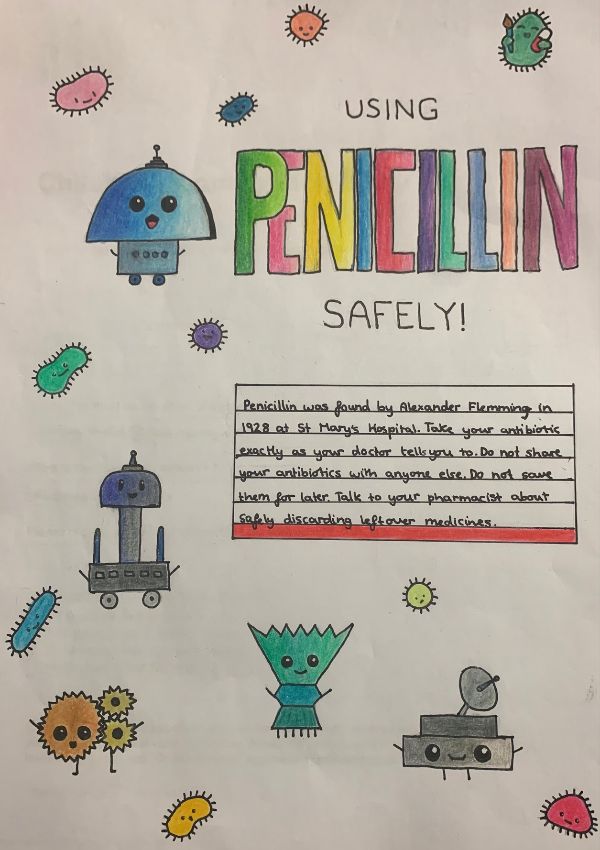 USING
PENICILLIN
SAFELY!
Penicillin was found by Alexander Flemming in
1928 at St Mary's Hospital. Take your antibiotic
exactly as your doctor tells you to. Do not share
your antibiotics with anyone else. Do not save
them for later. Talk to your pharmacist about
safely discarding leftover medicines.